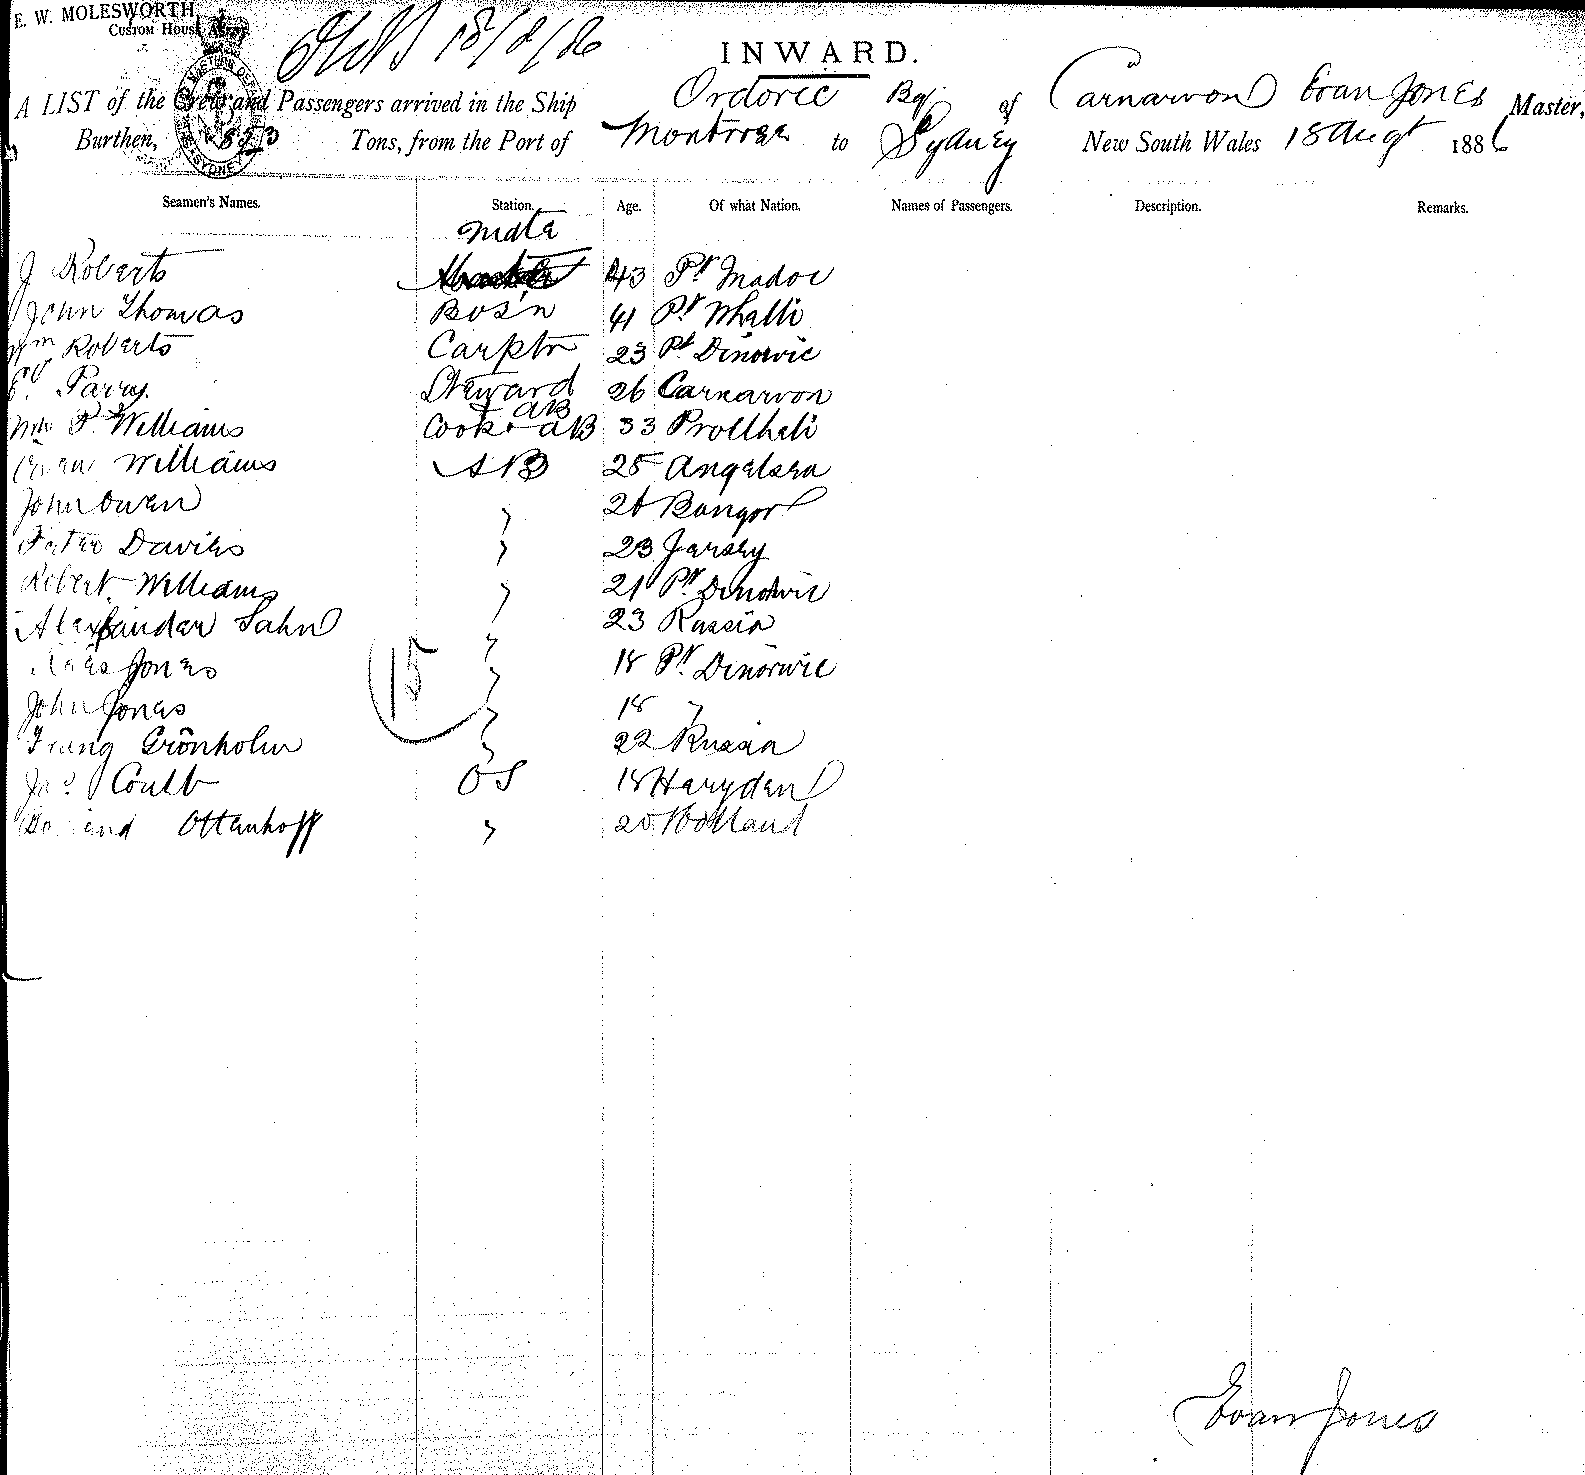 E. W. MOLESWORTH
CUSTOM HOUSE AGENT
18/8/86
INWARD.
A LIST of the Crew and Passengers arrived in the Ship Ordovic Bq of Carnarvon Evan Jones Master,
Burthen, 853 Tons, from the Port of Montrose to Sydney New South Wales 18 Augt 1886
Seamen's Names. Station. Age. Of what Nation. Names of Passengers. Description. Remarks.
Mate
J Roberts 43 Pt Madoc
John Thomas Bos'n 41 Pt Whelli
Wm Roberts Carptr 23 Pt Dinorwic
Parry Steward 26 Carnarvon
AB
Wm P. Williams Cook & AB 33 Pwllheli
Evan Williams AB 25 Angelsea
John Owen " 26 Bangor
Peter Davies " 23 Jersey
Robert Williams " 21 Pt Dinorwic
Alexsander Sahn " 23 Russia
Rees Jones " 18 Pt Dinorwic
15
John Jones " 18 "
Frang Grönholm " 22 Russia
Jno Coult OS 18 Harwden
Ottenhoff " 20 Holland
Evan Jones